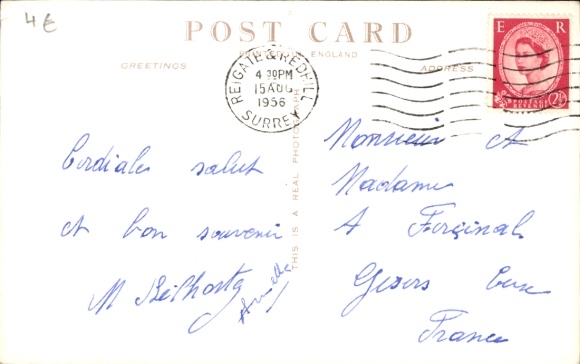 4 €
POST CARD
PRINTED IN ENGLAND
GREETINGS
ADDRESS
REIGATE & REDHILL
4 30PM
15 AUG
1956
SURREY
E R
POSTAGE
REVENUE
2½
THIS IS A REAL PHOTOGRAPH
Cordiales salut
et bon souvenir
M
Monsieur et
Madame
A
Gisors Eure
France